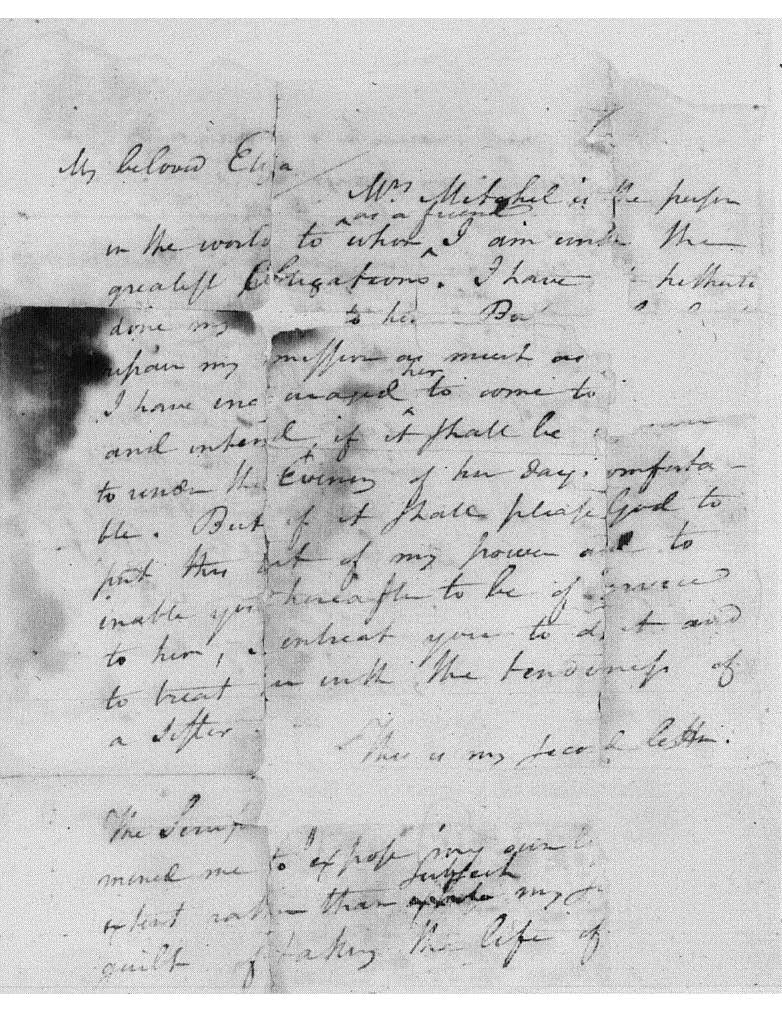 My beloved Eliza
Mrs Mitchel is the person
as a friend
in the world to whom I am under the
greatest Obligations. I have hitherto
done my to her. But
repair my mission as much as
her
I have encouraged to come to
and intend, if it shall be
to render the Evening of her days comforta-
ble. But if it shall please God to
put this out of my power and to
inable you hereafter to be of service
to her, entreat you to do it and
to treat with the tenderness of
a Sister.
This is my second letter.
The Scrup
mined me to expose my own li
Subject
extent rather than my
guilt of taking the life of